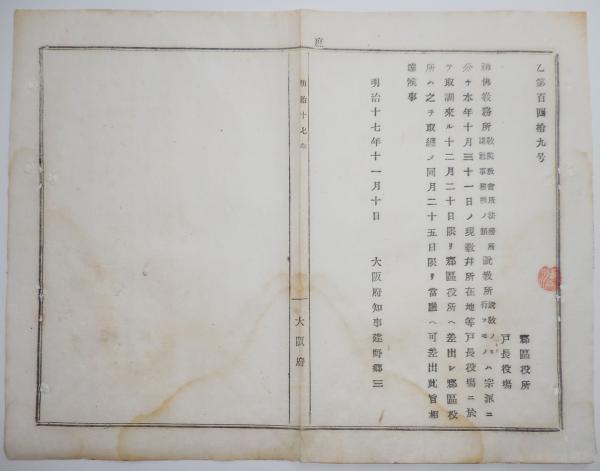 乙第百四拾九号
郡區役所
戸長役場
神佛教務所教院教會所法務所講社事務所ノ類説教所説教ノミヲ行フモノハ宗派ニ
分ケ本年十月三十一日ノ現数幷所在地等戸長役場ニ於
テ取調來ル十二月二十日限リ郡區役所ヘ差出シ郡區役
所ハ之ヲ取纒メ同月二十五日限リ當廳ヘ可差出此旨相
達候事
明治十七年十一月十日
大阪府知事建野郷三
府
明治十七年
大阪府